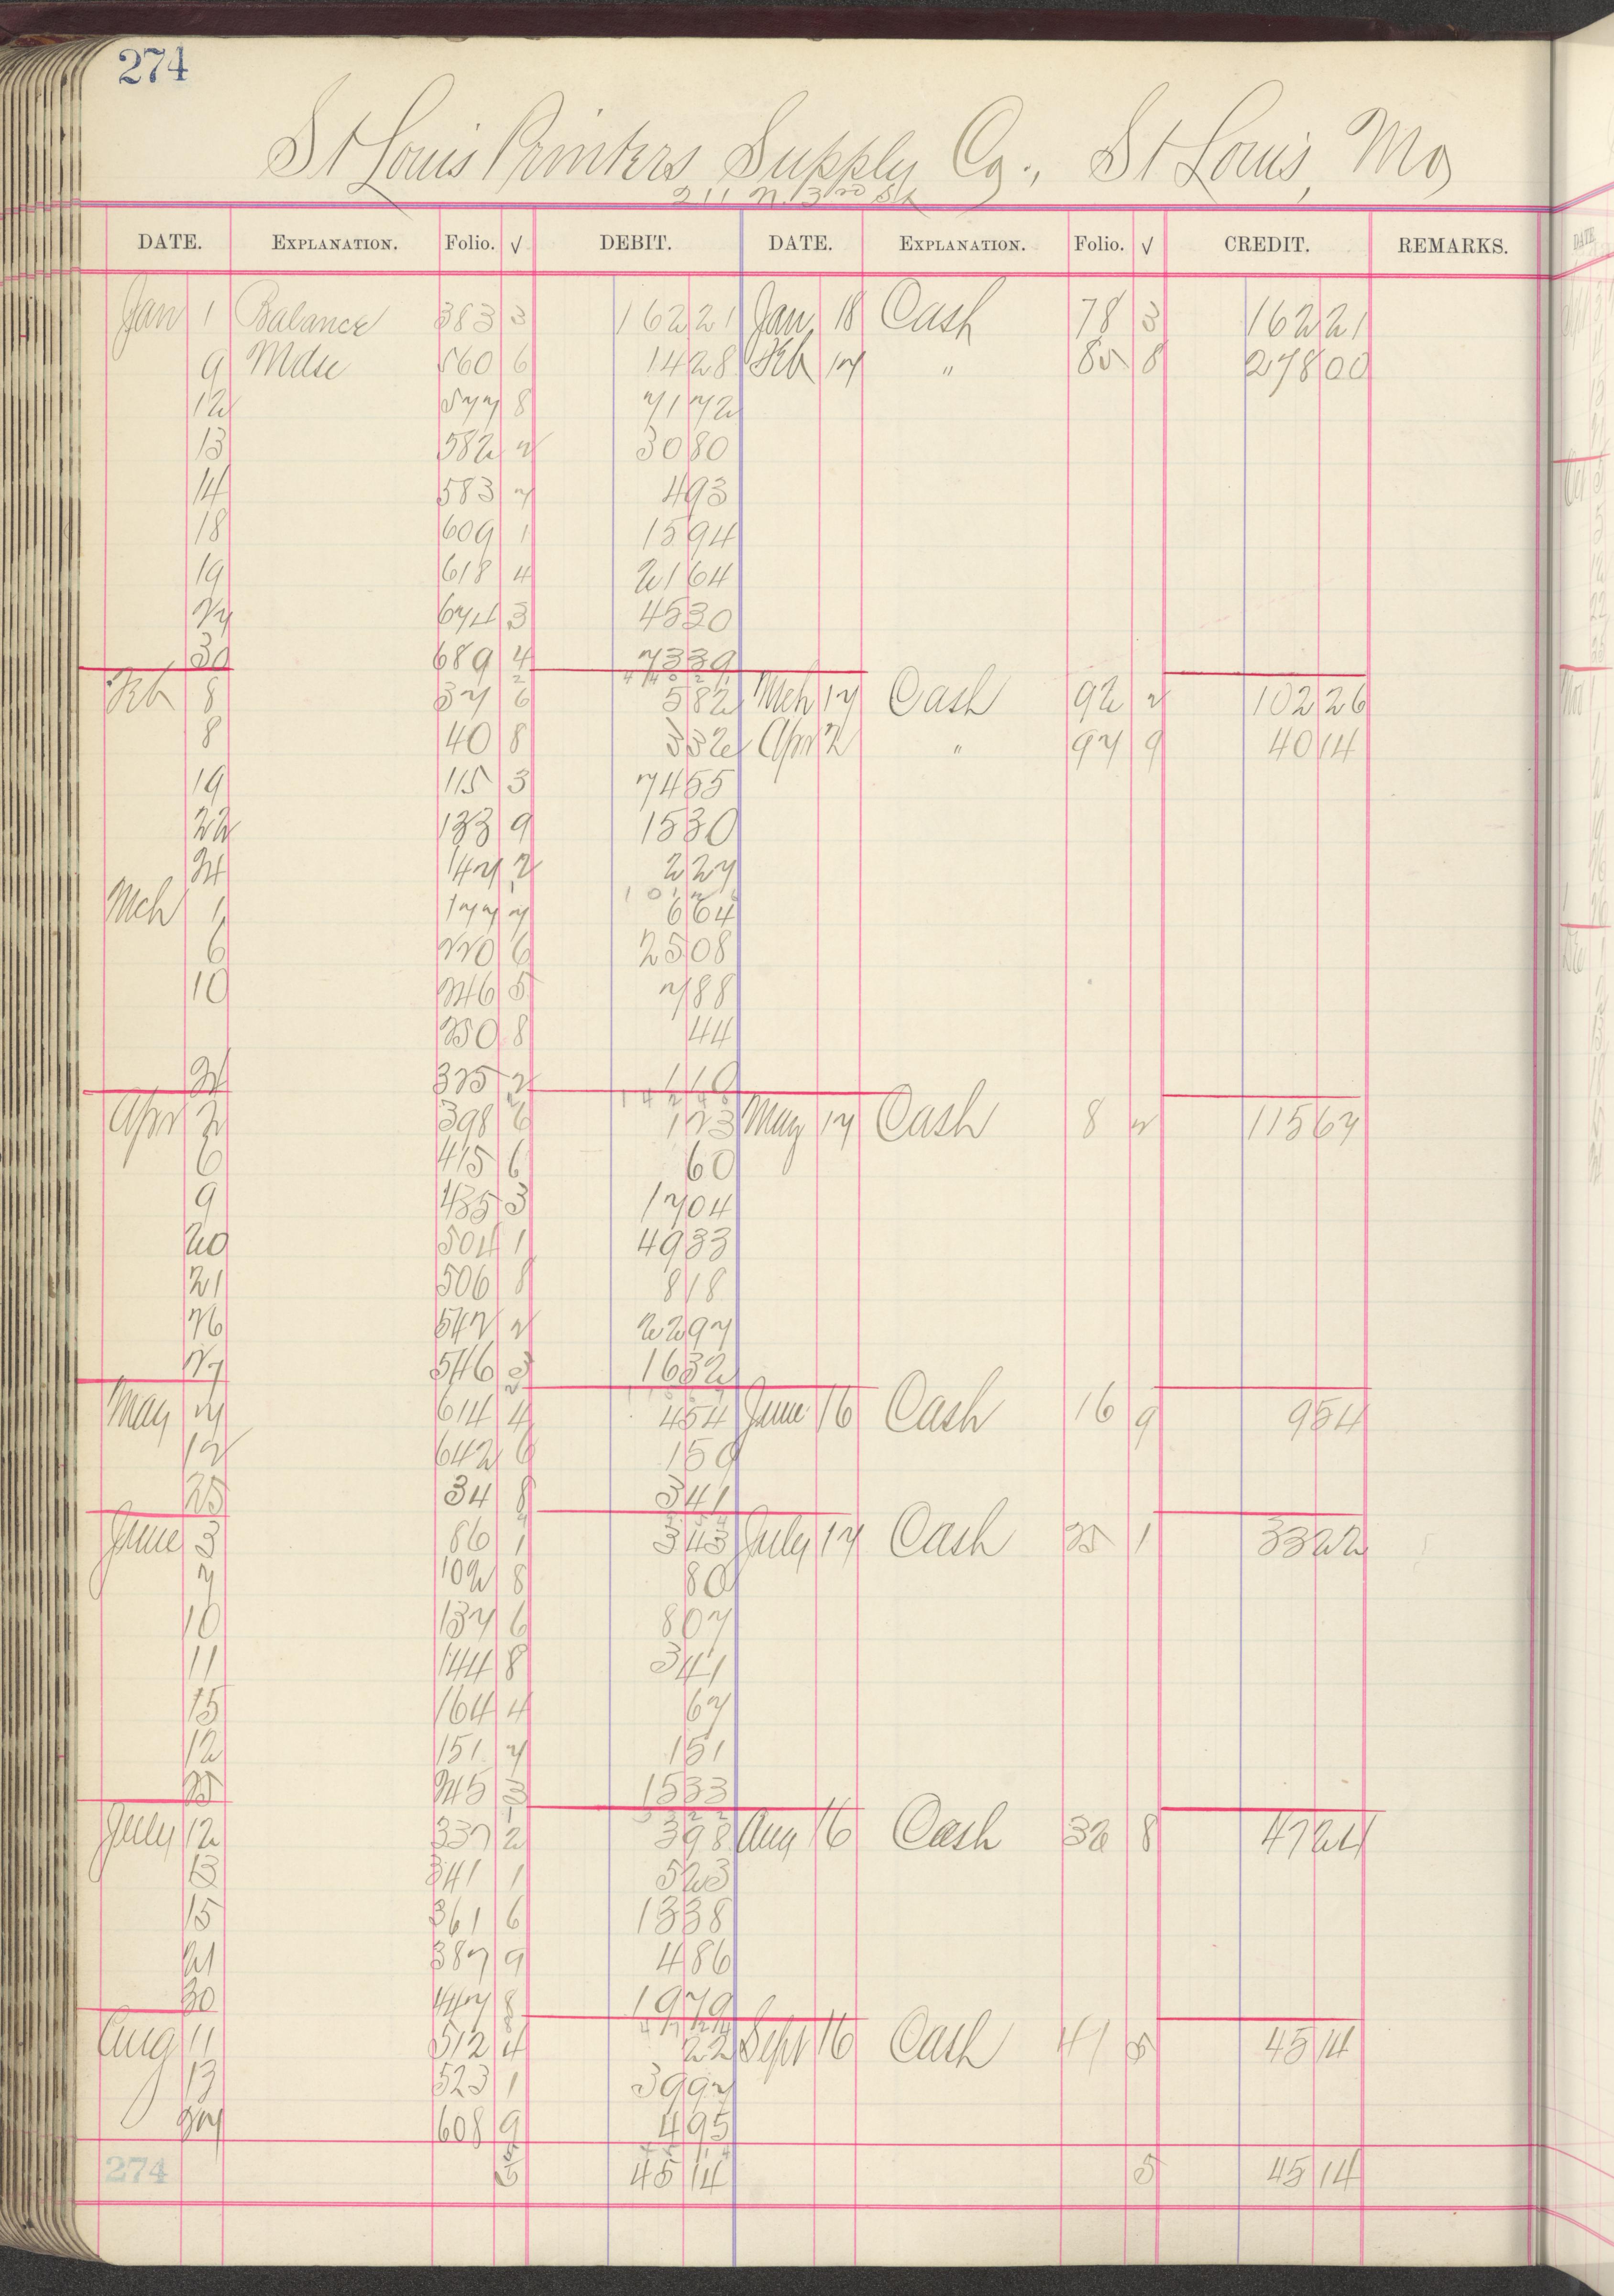 274
St Louis Printers Supply Co., St Louis, Mo
211 N. 3rd St
DATE. EXPLANATION. Folio. √ DEBIT. DATE. EXPLANATION. Folio. √ CREDIT. REMARKS.
Jan 1 Balance 383 3 162 21 Jan 18 Cash 78 3 162 21
9 Mdse 560 6 14 28 Feb 17 " 85 8 278 00
12 577 8 71 72
13 582 2 30 80
14 583 7 4 93
18 609 1 15 94
19 618 4 21 64
27 674 3 45 30
30 689 4 73 39
Feb 8 37 6 5 82 Mch 17 Cash 92 2 102 26
8 40 8 3 32 Apr 2 " 97 9 40 14
19 115 3 74 55
22 133 9 15 30
24 147 2 2 27
Mch 1 177 7 6 64
6 220 6 25 08
10 246 5 7 88
250 8 44
24 325 2 1 10
Apr 2 398 6 1 23 May 17 Cash 8 2 115 67
6 415 6 60
9 435 3 17 04
20 504 1 49 33
21 506 8 8 18
26 542 2 22 97
27 546 3 16 32
May 7 614 4 4 54 June 16 Cash 16 9 9 54
12 642 6 1 59
25 34 8 3 41
June 3 86 1 3 43 July 17 Cash 25 1 33 22
7 102 8 80
10 137 6 8 07
11 144 8 3 41
15 164 4 67
12 151 7 1 51
25 245 3 15 33
July 12 337 2 3 98 Aug 16 Cash 32 8 47 24
13 341 1 5 23
15 361 6 13 38
21 387 9 4 86
30 447 8 19 79
Aug 11 512 4 22 Sept 16 Cash 41 5 45 14
13 523 1 39 97
27 608 9 4 95
274 5 45 14 5 45 14